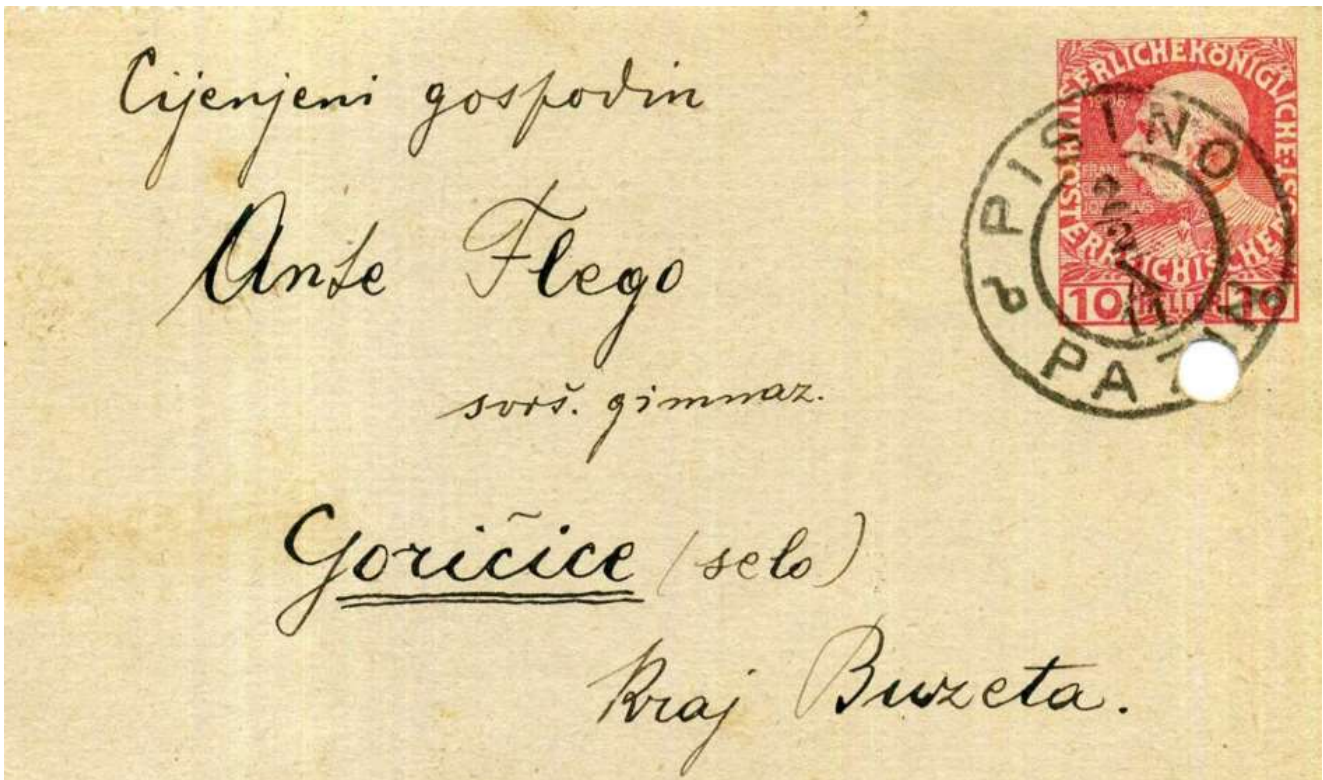 Cijenjeni gospodin
Ante Flego
svrš. gimnaz.
Goričice (selo)
kraj Buzeta.
KAISERLICHEKÖNIGLICHE ÖSTERREICHISCHE POST
1908
10 HELLER 10
PISINO
11
d PAZIN